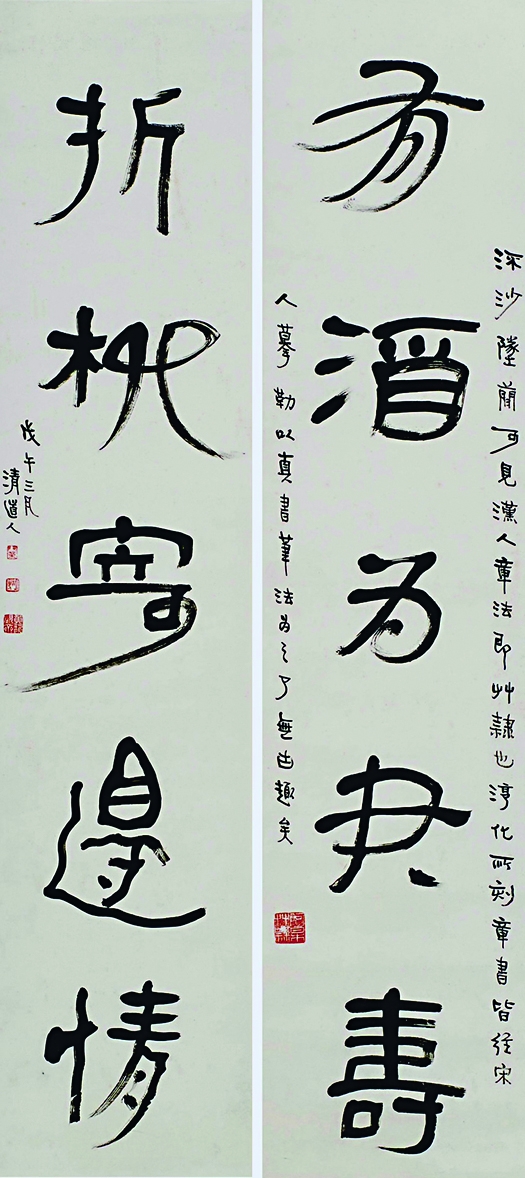 有酒為君壽
流沙墜簡可見漢人章法即艸隸也淳化所刻章書皆經宋
人摹勒以真書筆法為之了無古趣矣
折柳寄邊情
戊午三月
清道人